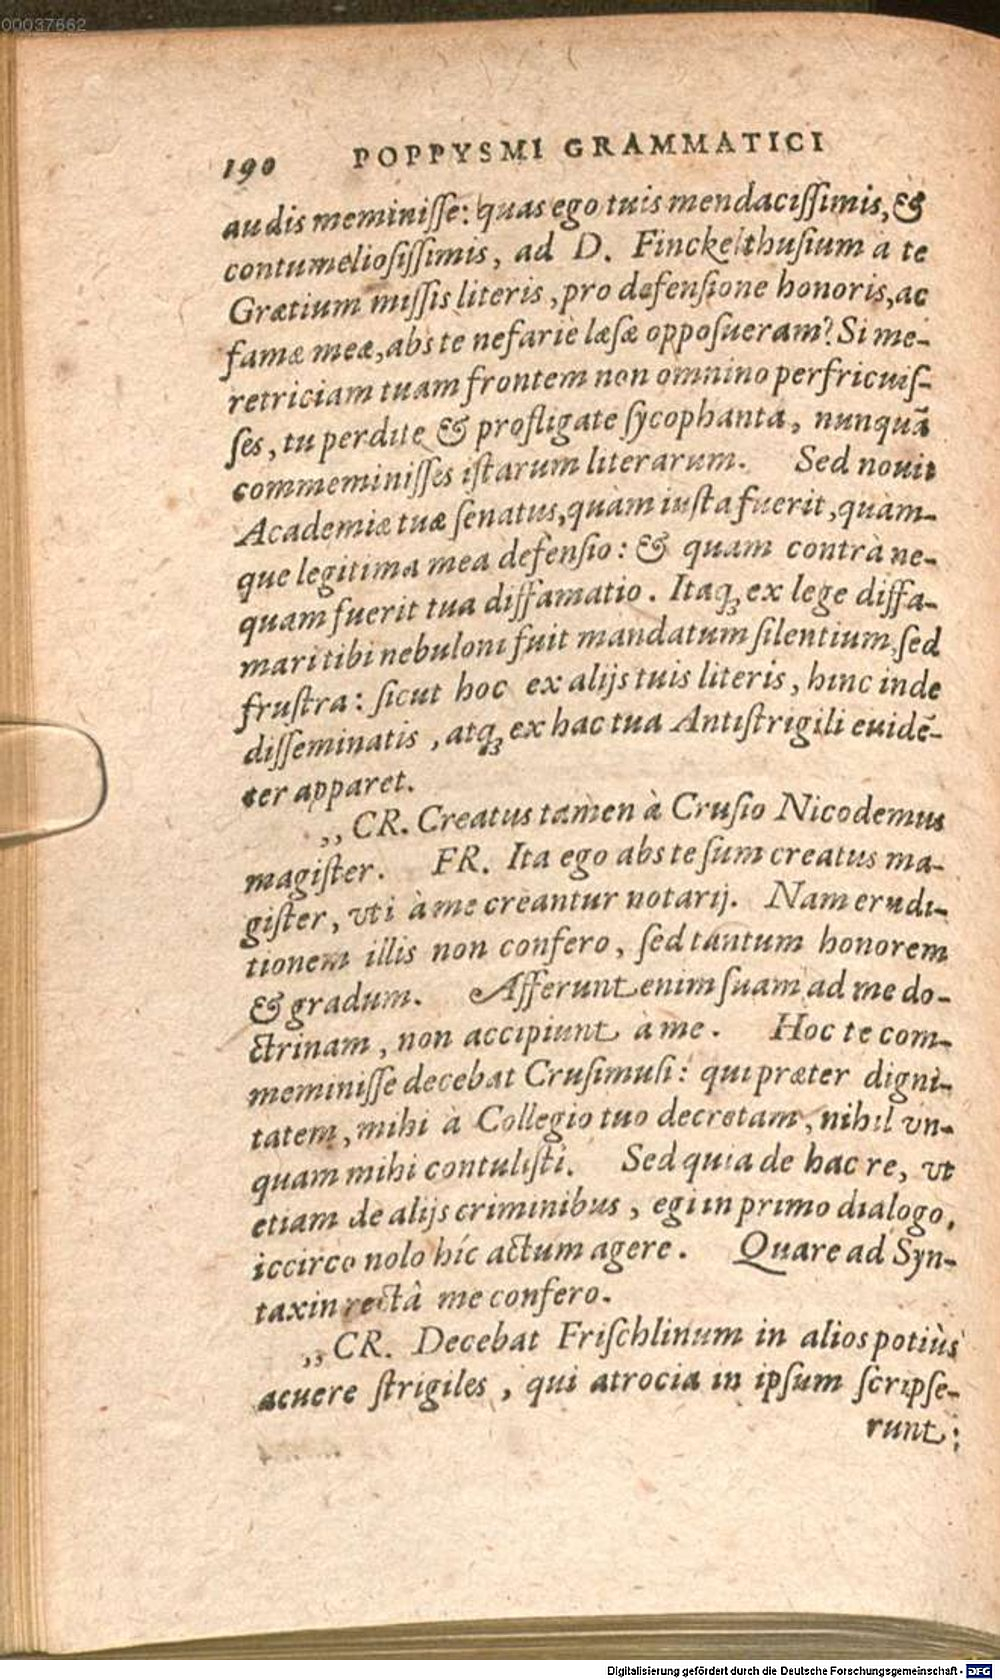 00037662
190 POPPYSMI GRAMMATICI
audis meminiſſe: quas ego tuis mendaciſſimis, &
contumelioſiſſimis, ad D. Finckelthuſium à te
Grætium miſſis literis, pro defenſione honoris, ac
famæ meæ, abs tè nefariè læſæ oppoſueram? Si me-
retriciam tuam frontem non omnino perfricuiſ-
ſes, tu perdite & profligate ſycophanta, nunquã
commeminiſſes iſtarum literarum. Sed nouit
Academiæ tuæ ſenatus, quàm iuſta fuerit, quàm-
que legitima mea defenſio: & quam contrà ne-
quam fuerit tua diffamatio. Itaq; ex lege diffa-
mari tibi nebuloni fuit mandatum ſilentium, ſed
fruſtra: ſicut hoc ex alijs tuis literis, hinc inde
diſſeminatis, atq; ex hac tua Antiſtrigili euidẽ-
ter apparet.
,, CR. Creatus tamen à Cruſio Nicodemus
magiſter. FR. Ita ego abs te ſum creatus ma-
giſter, vti à me creantur notarij. Nam erudi-
tionem illis non confero, ſed tantum honorem
& gradum. Afferunt enim ſuam ad me do-
ctrinam, non accipiunt à me. Hoc te com-
meminiſſe decebat Cruſimuſi: qui præter digni-
tatem, mihi à Collegio tuo decretam, nihil vn-
quam mihi contuliſti. Sed quia de hac re, vt
etiam de alijs criminibus, egi in primo dialogo,
iccirco nolo hîc actum agere. Quare ad Syn-
taxin rectâ me confero.
,, CR. Decebat Friſchlinum in alios potiùs
acuere ſtrigiles, qui atrocia in ipſum ſcripſe-
runt:
Digitalisierung gefördert durch die Deutsche Forschungsgemeinschaft - DFG